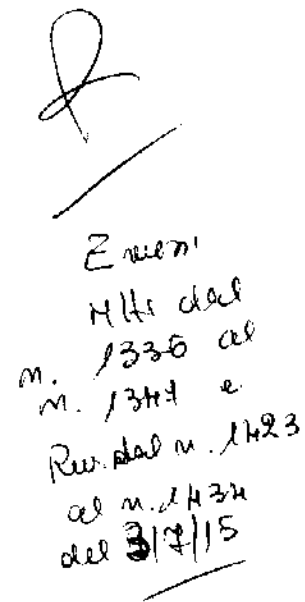 Emessi
Mtti dal
n. 1336 al
n. 1347 e
Rev. dal n. 1423
al n. 1434
del 3/7/15